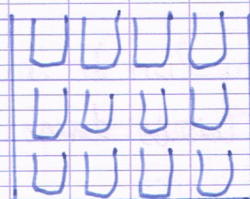 U U U U
U U U U
U U U U